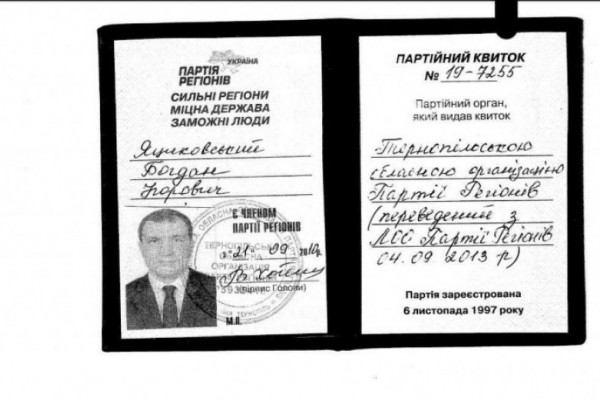 УКРАЇНА
ПАРТІЯ
РЕГІОНІВ
СИЛЬНІ РЕГІОНИ
МІЦНА ДЕРЖАВА
ЗАМОЖНІ ЛЮДИ
Яциковський
Богдан
Ігорович
Є ЧЛЕНОМ
ПАРТІЇ РЕГІОНІВ
"21" 09 2010р.
(підпис Голови)
М.П.
ПАРТІЙНИЙ КВИТОК
№ 19-7255
Партійний орган,
який видав квиток
Тернопільською
обласною організацією
Партії Регіонів
(переведений з
ЛОО Партії Регіонів
04.09.2013 р)
Партія зареєстрована
6 листопада 1997 року